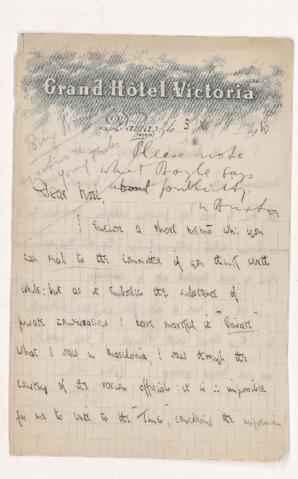 Grand Hôtel Victoria
Damas, le 5 XI 1910
Please note
what Hoyle says
about
Dear Noel,
I enclose a short memo whi. you
can read to the committee if you think worth
while: but as it embodies the substance of
private conversations I have marked it "Private".
What I saw in Macedonia I saw through the
courtesy of the various officials: it is ∴ impossible
for me to write to the "Times", criticising the